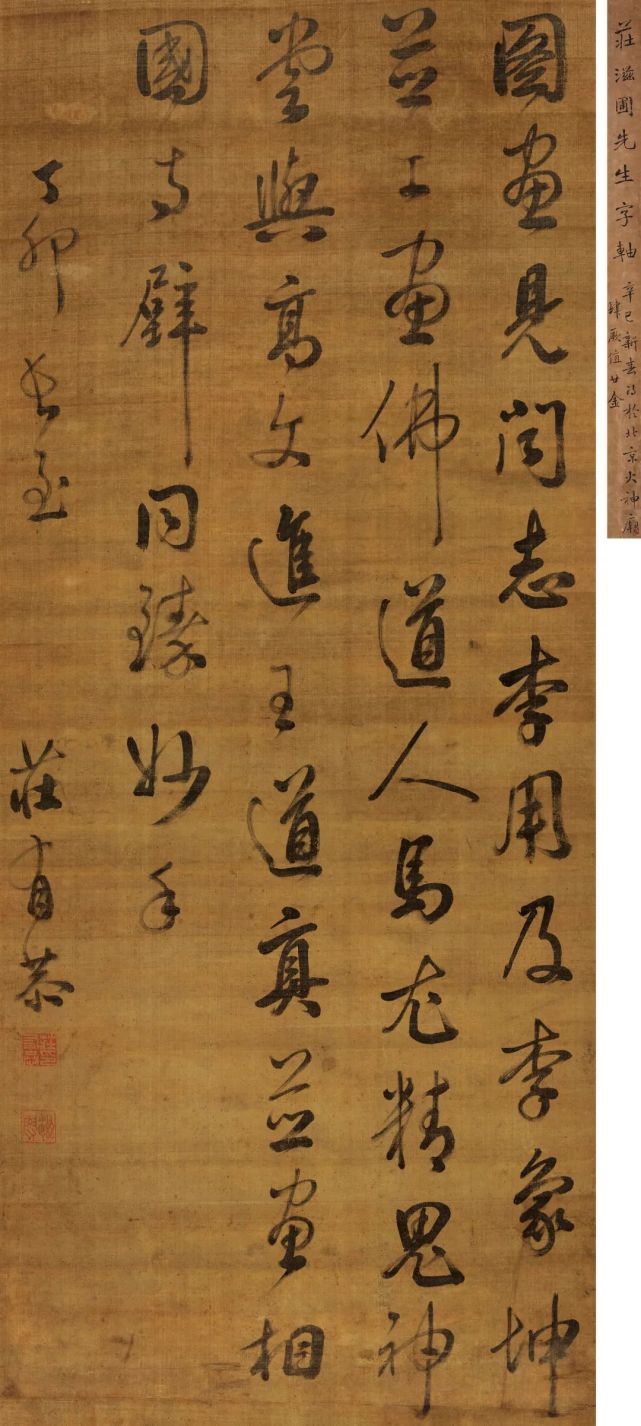 莊滋圃先生字軸
辛巳新春得於北京火神廟
肆厥值廿金
圖畫見聞志李用及李象坤
並工畫佛道人馬尤精鬼神
嘗與高文進王道真並畫相
國寺壁同臻妙手
丁卯長至
莊有恭